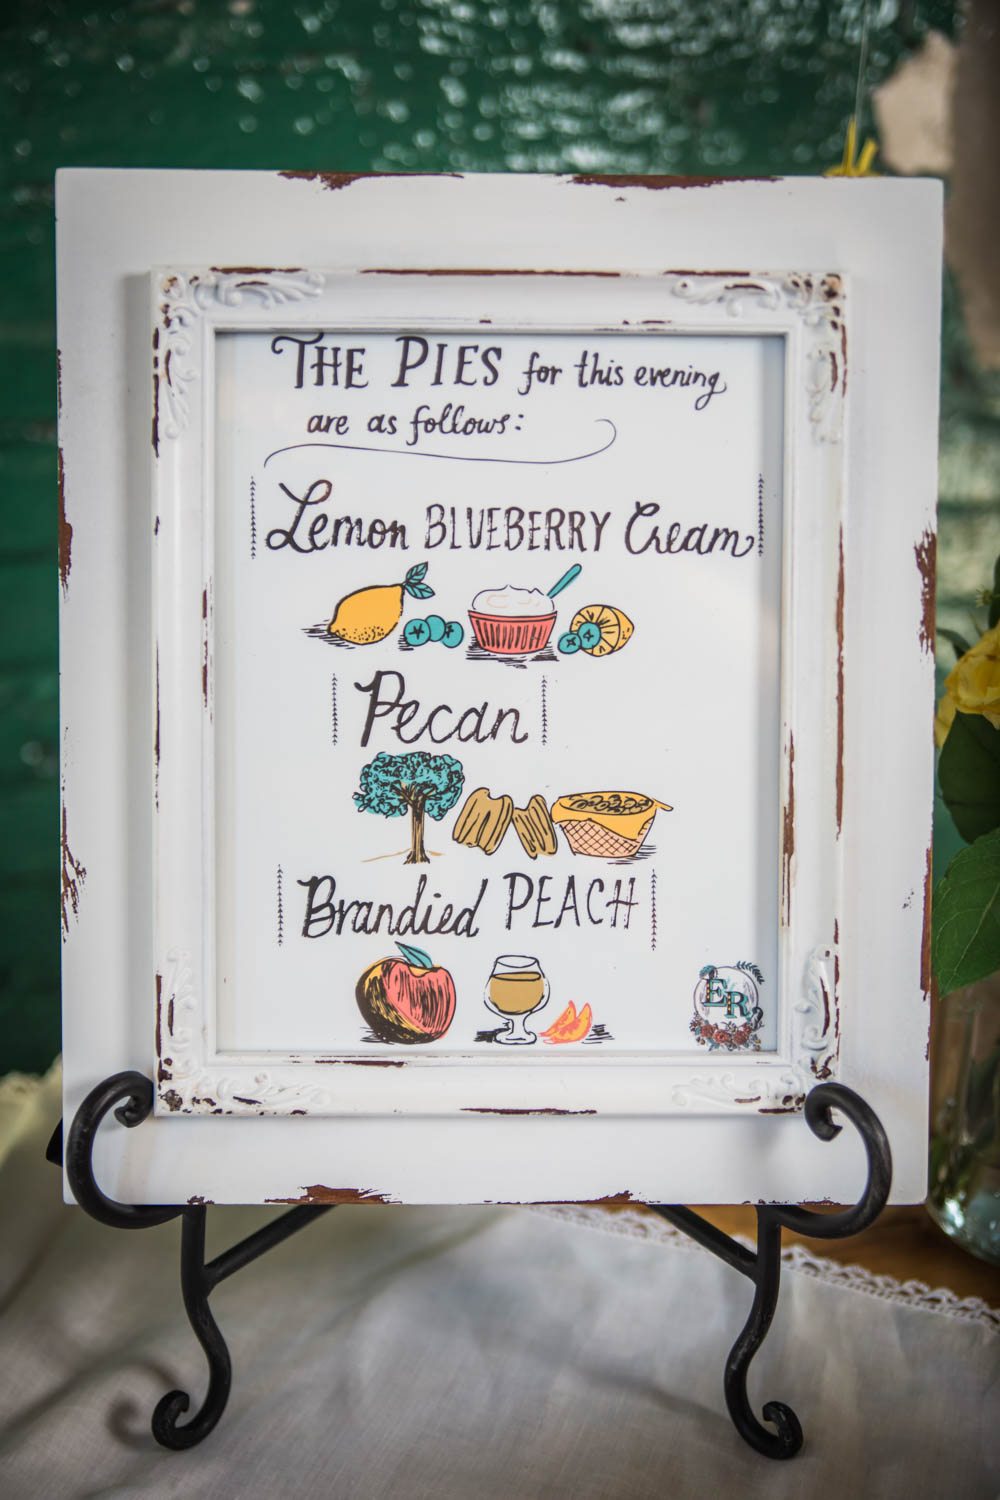 THE PIES for this evening,
are as follows:
Lemon BLUEBERRY Cream
Pecan
Brandied PEACH
ER